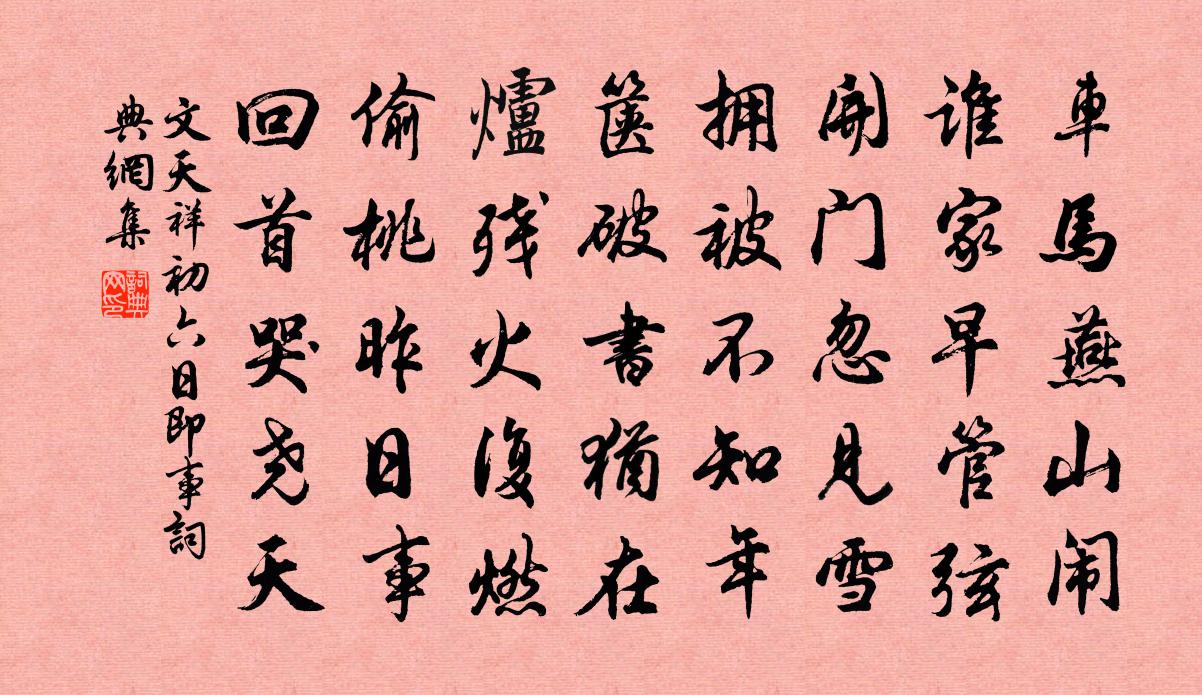 車馬燕山闹
谁家早管弦
開门忽見雪
拥被不知年
箧破書猶在
爐残火復燃
偷桃昨日事
回首哭尧天
文天祥初六日即事詞
典網集
詞典网印